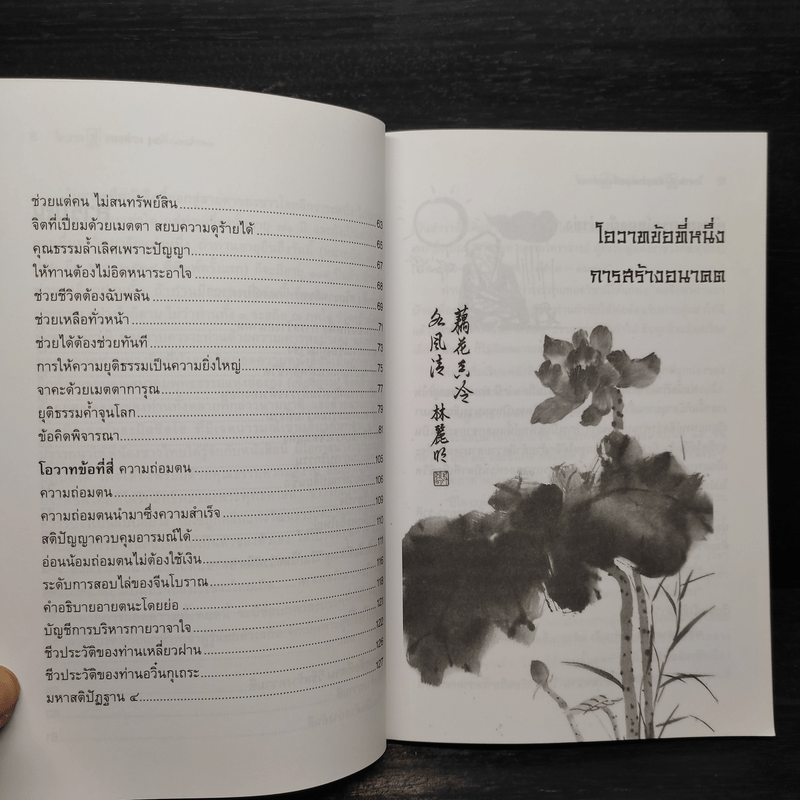 ช่วยแต่คน ไม่สนทรัพย์สิน 63
จิตที่เปี่ยมด้วยเมตตา สยบความดุร้ายได้ 65
คุณธรรมล้ำเลิศเพราะปัญญา 67
ให้ทานต้องไม่อิดหนาระอาใจ 68
ช่วยชีวิตต้องฉับพลัน 69
ช่วยเหลือทั่วหน้า 71
ช่วยได้ต้องช่วยทันที 73
การให้ความยุติธรรมเป็นความยิ่งใหญ่ 75
จาคะด้วยเมตตาการุณ 77
ยุติธรรมค้ำจุนโลก 79
ข้อคิดพิจารณา 81
โอวาทข้อที่สี่ ความถ่อมตน 105
ความถ่อมตน 108
ความถ่อมตนนำมาซึ่งความสำเร็จ 109
สติปัญญาควบคุมอารมณ์ได้ 110
อ่อนน้อมถ่อมตนไม่ต้องใช้เงิน 111
ระดับการสอบไล่ของจีนโบราณ 116
คำอธิบายอายตนะโดยย่อ 118
บัญชีการบริหารกายวาจาใจ 121
ชีวประวัติของท่านเหลี่ยวฝาน 122
ชีวประวัติของท่านอวิ๋นกุเถระ 126
มหาสติปัฏฐาน ๔ 127
โอวาทข้อที่หนึ่ง
การสร้างอนาคต
藕花香冷
水風清 林麗明